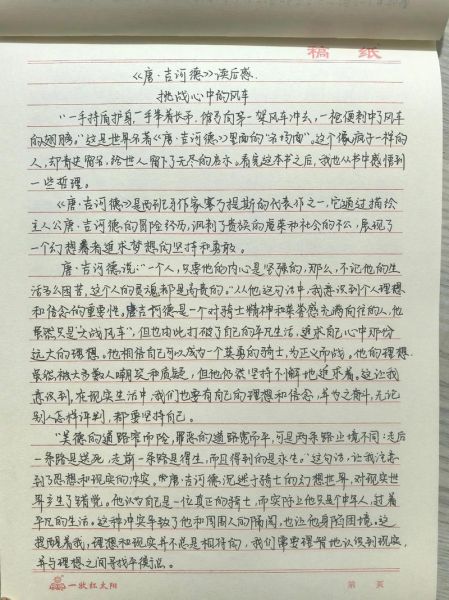 稿 纸
《唐·吉诃德》读后感
挑战心中的风车
“一手持盾护身，一手举着长矛，俯身向第一架风车冲去，一枪便刺中了风车
的翅膀。”这是世界名著《唐·吉诃德》里面的“名场面”。这个像疯子一样的
人，却青史留名，给世人留下了无尽的启示。看完这本书之后，我也从书中感悟到
一些哲理。
《唐·吉诃德》是西班牙作家塞万提斯的代表作之一，它通过描绘
主人公唐·吉诃德的冒险经历，讽刺了贵族的虚荣和社会的不公，展现了
一个幻想着者追求梦想的坚持和勇敢。
唐·吉诃德说：“一个人，只要他的内心是坚强的，那么，不记他的生
活多么困苦，这个人的灵魂都是高贵的。”从他这句话中，我意识到个人理想
和信念的重要性。唐吉诃德是一个对骑士精神和荣誉感充满向往的人，他
虽然只是“大战风车”，但也由此打破了自己的平凡生活，追求自己心中那份
远大的理想。他相信自己可以成为一个英勇的骑士，为正义而战，他的理想
虽然被大多数人嘲笑和质疑，但他仍然坚持不懈地追求着。这让我
意识到，在现实生活中，我们也要有自己的理想和信念，并为之奋斗，无论
别人怎样评判，都要坚持自己。
“美德的道路窄而险，罪恶的道路宽而平，可是两条路止境不同：走后
一条路是送死，走前一条路是得生，而且得到的是永生。”这句话，让我注意
到了思想和现实的冲突。唐吉诃德沉迷于骑士的幻想世界，对现实世
界产生了错觉。他认为自己是一位真正的骑士，而实际上他只是个中年人，过着
平凡的生活。这种冲突导致了他和周围人的隔阂，也让他身陷困境。这
提醒着我，理想和现实并不总是相符的，我们需要理智地认识到现实，
并与理想之间寻找平衡点。
一轮红太阳
第 页